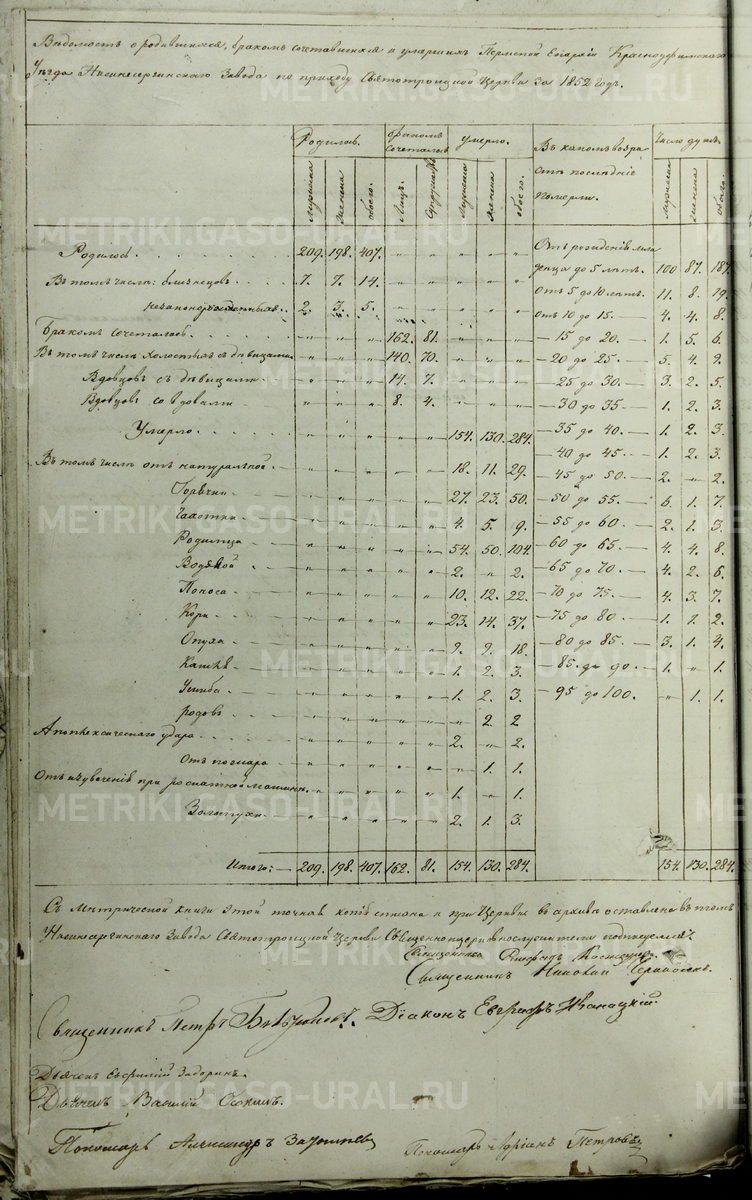 Ведомость о родившихся, бракомъ сочетавшихся и умершихъ Пермской Епархіи Красноуфимскаго
Уезда Нижнесергинскаго Завода по приходу Святотроицкой Церкви за 1852 годъ.
Родилось. бракомъ сочеталось умерло. Въ какомъ возрастѣ последніе померли. Число душъ.
мужеска женска обоего. Лицъ. Супружествъ мужеска женска обоего. мужеска женска обоего.
Родилось 209. 198. 407. " " " " "
Въ томъ числѣ: близнецовъ. 7. 7. 14. " " " " "
незаконорожденныхъ. 2. 3. 5. " " " " "
Бракомъ сочеталось. " " " 162. 81. " " "
Въ томъ числѣ холостыхъ съ дѣвицами " " " 140. 70. " " "
Вдовцовъ съ дѣвицами. " " " 14. 7. " " "
Вдовцовъ со вдовами " " " 8. 4. " " "
Умерло. " " " " " 154. 130. 284.
Въ томъ числѣ отъ натуральной. " " " " " 18. 11. 29.
Горячки " " " " " 27. 23. 50.
Чахотки " " " " " 4. 5. 9.
Родимца " " " " " 54. 50. 104.
Водяной " " " " " 2. " 2.
Поноса " " " " " 10. 12. 22.
Кори " " " " " 23. 14. 37.
Опуха " " " " " 9. 9. 18.
Кашля " " " " " 1. 2. 3.
Ушиба " " " " " 1. 2. 3.
родовъ " " " " " " 2. 2
Апоплексическаго удара " " " " " 2. " 2.
Отъ " " " " " " 1. 1.
Отъ изувеченія при машинѣ. " " " " " 1. " 1.
Золотухи " " " " " 2. 1. 3.
Итого: 209. 198. 407. 162. 81. 154. 130. 284.
Отъ рожденія мла
денца до 5 летъ. 100 87. 187.
Отъ 5 до 10 летъ. 11. 8. 19.
Отъ 10 до 15. 4. 4. 8.
— 15 до 20. 1. 5. 6.
— 20 до 25. 5. 4. 9.
— 25 до 30. 3. 2. 5.
— 30 до 35 1. 2. 3.
— 35 до 40. 1. 2. 3.
— 40 до 45. 1. 2. 3.
— 45 до 50. 2. " 2.
— 50 до 55. 6. 1. 7.
— 55 до 60. 2. 1. 3.
— 60 до 65. 4. 4. 8.
— 65 до 70. 4. 2. 6.
— 70 до 75. 4. 3. 7.
— 75 до 80 1. 1. 2.
— 80 до 85. 3. 1. 4.
— 85. до 90. 1. " 1.
— 95 до 100. " 1. 1.
154. 130. 284.
Съ Метрической книги этой точная копія списана и при Церкви въ архивѣ оставлена въ томъ
Нижнесергинскаго Завода Святотроицкой Церкви Священноцерковнослужители подписуемся:
Священникъ
Священникъ Николай
Священникъ Петръ Діаконъ Евграфъ
Дьячекъ Задоринъ.
Дьячекъ Василій
Пономарь Александръ
Пономарь Петровъ
METRIKI.GASO-URAL.RU